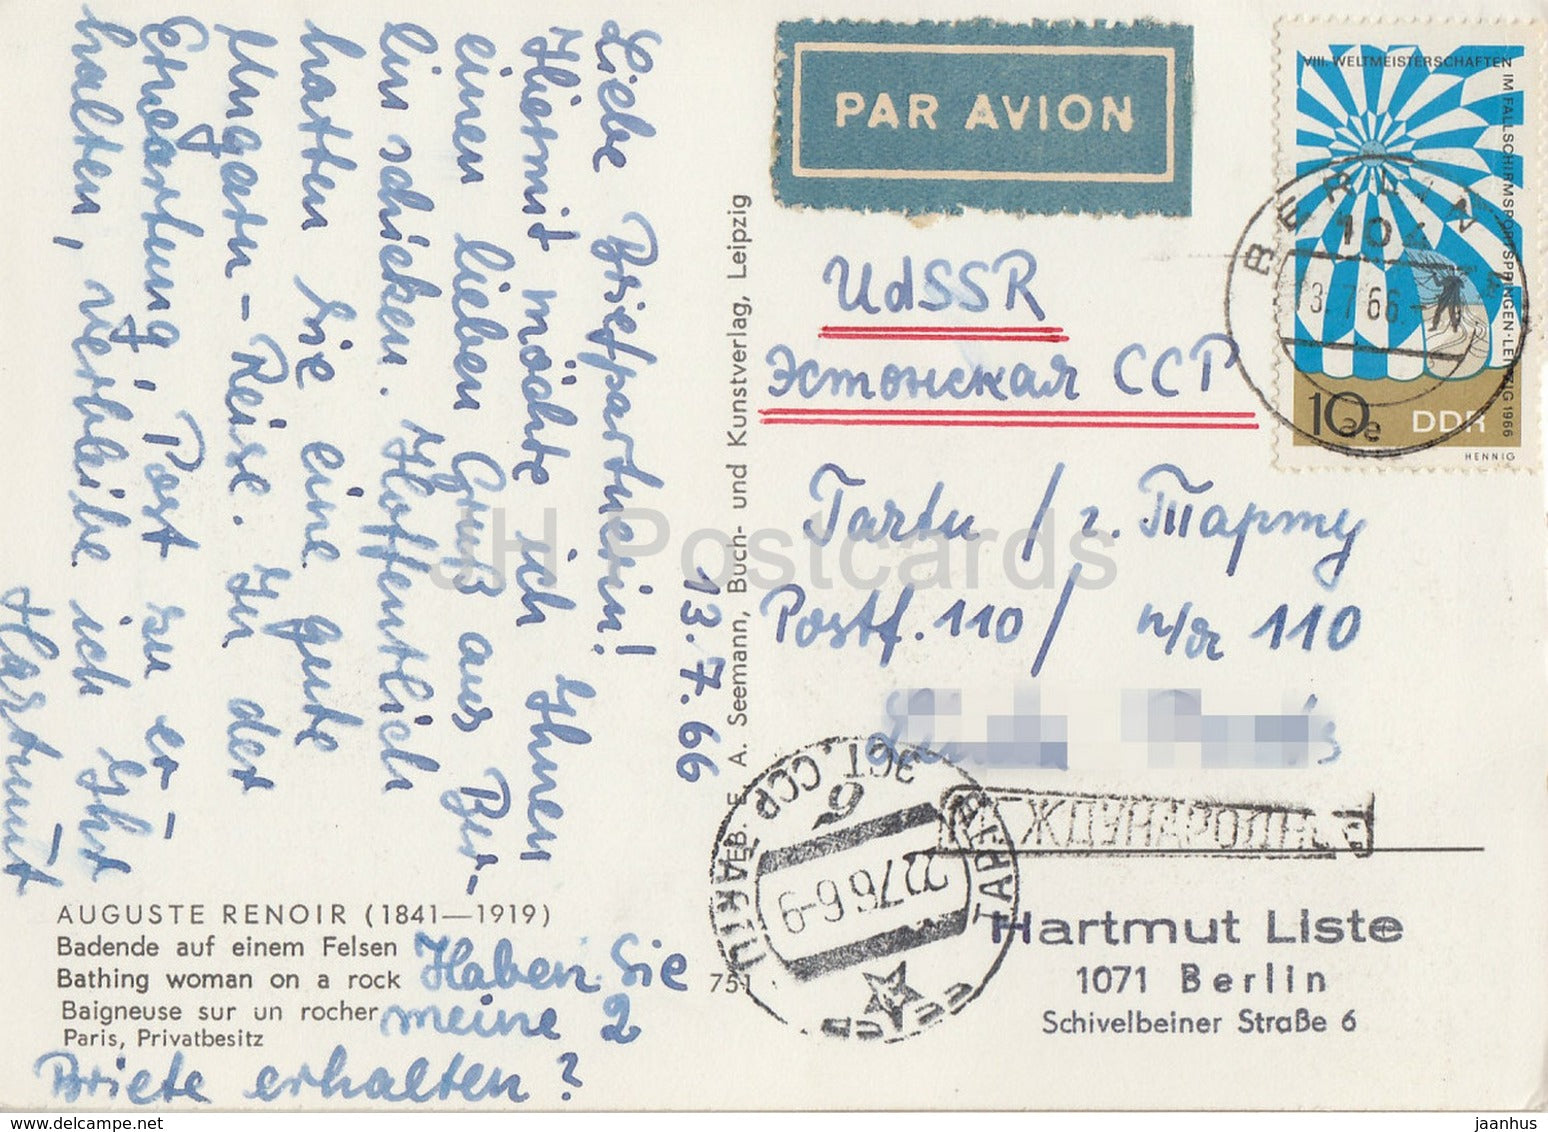 13.7.66
Liebe Briefpartnerin!
Hiermit möchte ich Ihnen
einen lieben Gruß aus Ber-
lin schicken. Hoffentlich
hatten Sie eine gute
Ungarn-Reise. In der
Erwartung, Post zu er-
halten, verbleibe ich Ihr
Hartmut
Haben Sie
meine 2
Briefe erhalten?
AUGUSTE RENOIR (1841—1919)
Badende auf einem Felsen
Bathing woman on a rock
Baigneuse sur un rocher
Paris, Privatbesitz
VEB E. A. Seemann, Buch- und Kunstverlag, Leipzig
751
PAR AVION
VIII. WELTMEISTERSCHAFTEN
IM FALLSCHIRMSPORTSPRINGEN · LEIPZIG 1966
10
DDR
HENNIG
BERLIN
104
13.7.66
ae
UdSSR
Эстонская ССР
Tartu / г. Тарту
Postf. 110 / п/я 110
ТАРТУ ЭСТ. ССР
6
22766-9
TARTU EESTI
МЕЖДУНАРОДНОЕ
Hartmut Liste
1071 Berlin
Schivelbeiner Straße 6
JH Postcards
delcampe.net
jaanhus